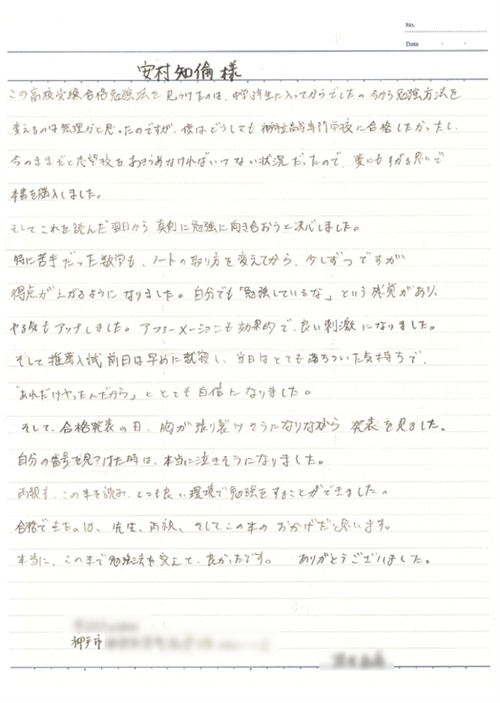 No.
Date
安村知倫様
この高校受験合格勉強法を見つけたのは、中学3年生に入ってからでした。今から勉強方法を
変えるのは無理かと思ったのですが、僕はどうしても神戸市立高等専門学校に合格したかったし、
今のままだと志望校をあきらめなければいけない状況だったので、藁にもすがる思いで
本書を購入しました。
そしてこれを読んだ翌日から真剣に勉強に向き合おうと決心しました。
特に苦手だった数学も、ノートの取り方を変えてから、少しずつですが
得点が上がるようになりました。自分でも「勉強しているな」という感覚があり、
やる気もアップしました。アファメーションも効果的で、良い刺激になりました。
そして推薦入試前日は早めに就寝し、当日はとても落ちついた気持ちで、
「あれだけやったんだから」ととても自信になりました。
そして、合格発表の日、胸が張り裂けそうになりながら発表を見ました。
自分の番号を見つけた時は、本当に泣きそうになりました。
両親も、この本を読み、とても良い環境で勉強をすることができました。
合格できたのは、先生、両親、そしてこの本のおかげだと思います。
本当に、この本で勉強法を変えて、良かったです。 ありがとうございました。
神戸市